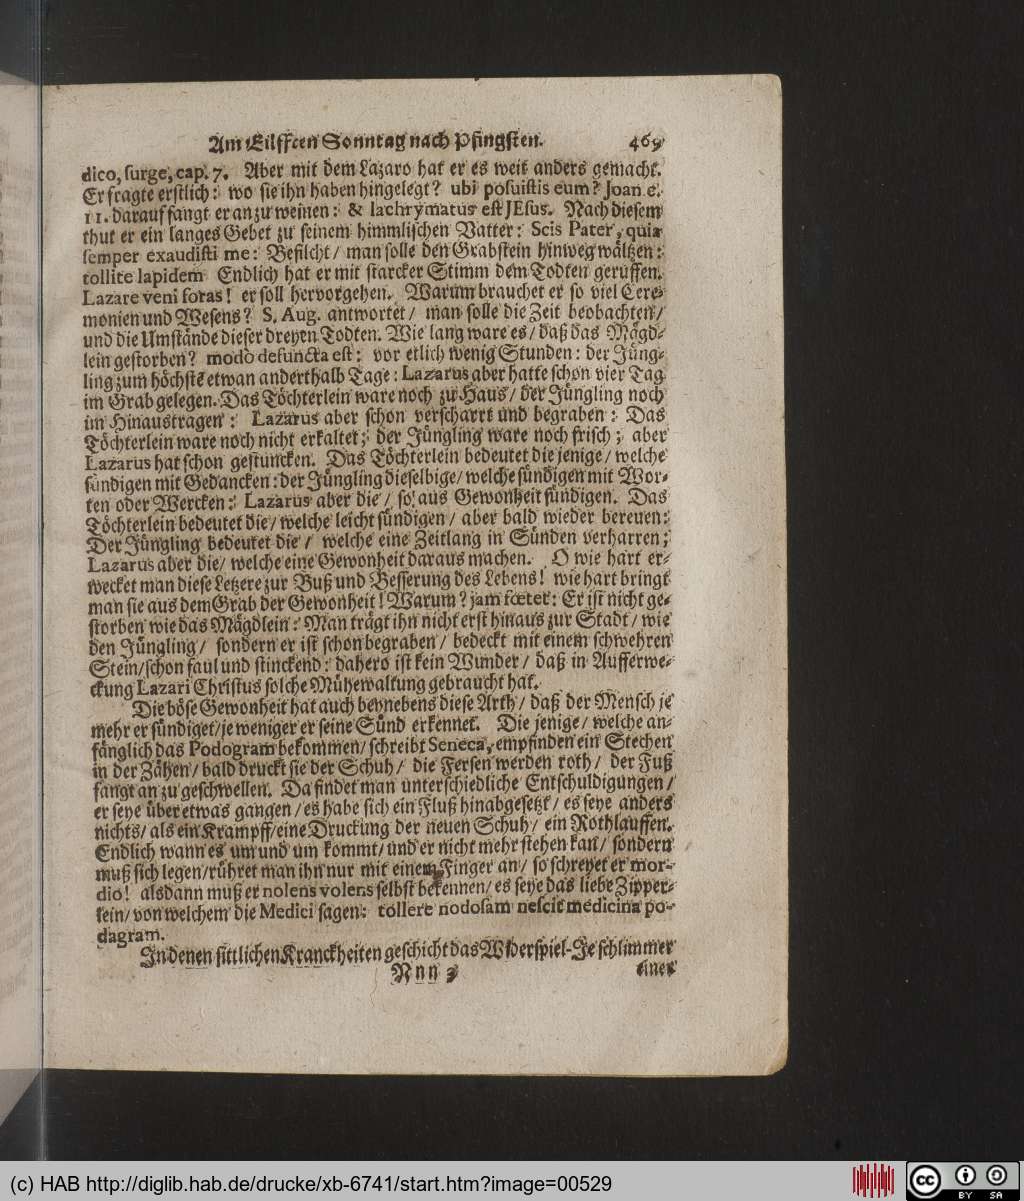 Am Eilfften Sonntag nach Pfingsten. 469
dico, surge, cap. 7. Aber mit dem Lazaro hat er es weit anders gemacht.
Er fragte erstlich: wo sie ihn haben hingelegt? ubi posuistis eum? Joan c.
11. darauf fangt er an zu weinen: & lachrymatus est JEsus. Nach diesem
thut er ein langes Gebet zu seinem himmlischen Vatter: Scis Pater, quia
semper exaudisti me: Befilcht/ man solle den Grabstein hinweg wältzen:
tollite lapidem Endlich hat er mit starcker Stimm dem Todten geruffen.
Lazare veni foras! er soll hervorgehen. Warum brauchet er so viel Cere-
monien und Wesens? S. Aug. antwortet/ man solle die Zeit beobachten/
und die Umstände dieser dreyen Todten. Wie lang ware es/ daß das Mägd-
lein gestorben? modò defuncta est: vor etlich wenig Stunden: der Jüng-
ling zum höchstē etwan anderthalb Tage: Lazarus aber hatte schon vier Tag
im Grab gelegen. Das Töchterlein ware noch zu Haus/ der Jüngling noch
im Hinaustragen: Lazarus aber schon verscharrt und begraben: Das
Töchterlein ware noch nicht erkaltet; der Jüngling ware noch frisch; aber
Lazarus hat schon gestuncken. Das Töchterlein bedeutet die jenige/ welche
sündigen mit Gedancken: der Jüngling dieselbige/ welche sündigen mit Wor-
ten oder Wercken: Lazarus aber die/ so aus Gewonheit sündigen. Das
Töchterlein bedeutet die/ welche leicht sündigen/ aber bald wieder bereuen:
Der Jüngling bedeutet die/ welche eine Zeitlang in Sünden verharren;
Lazarus aber die/ welche eine Gewonheit daraus machen. O wie hart er-
wecket man diese Letzere zur Buß und Besserung des Lebens! wie hart bringt
man sie aus dem Grab der Gewonheit! Warum? jam fœtet: Er ist nicht ge-
storben wie das Mägdlein: Man trägt ihn nicht erst hinaus zur Stadt/ wie
den Jüngling/ sondern er ist schon begraben/ bedeckt mit einem schwehren
Stein/ schon faul und stinckend: dahero ist kein Wunder/ daß in Aufferwe-
ckung Lazari Christus solche Mühewaltung gebraucht hat.
Die böse Gewonheit hat auch beynebens diese Arth/ daß der Mensch je
mehr er sündiget/ je weniger er seine Sünd erkennet. Die jenige/ welche an-
fänglich das Podogram bekommen/ schreibt Seneca, empfinden ein Stechen
in der Zähen/ bald druckt sie der Schuh/ die Fersen werden roth/ der Fuß
fangt an zu geschwellen. Da findet man unterschiedliche Entschuldigungen/
er seye über etwas gangen/ es habe sich ein Fluß hinabgesetzt/ es seye anders
nichts/ als ein Krampff/ eine Druckung der neuen Schuh/ ein Rothlauffen.
Endlich wann es um und um kommt/ und er nicht mehr stehen kan/ sondern
muß sich legen/ rühret man ihn nur mit einem Finger an/ so schreyet er mor-
dio! alsdann muß er nolens volens selbst bekennen/ es seye das liebe Zipper-
lein/ von welchem die Medici sagen: tollere nodosam nescit medicina po-
dagram.
In denen sittlichen Kranckheiten geschicht das Widerspiel-Je schlimmer
Nnn 3 einer
(c) HAB http://diglib.hab.de/drucke/xb-6741/start.htm?image=00529
cc BY SA